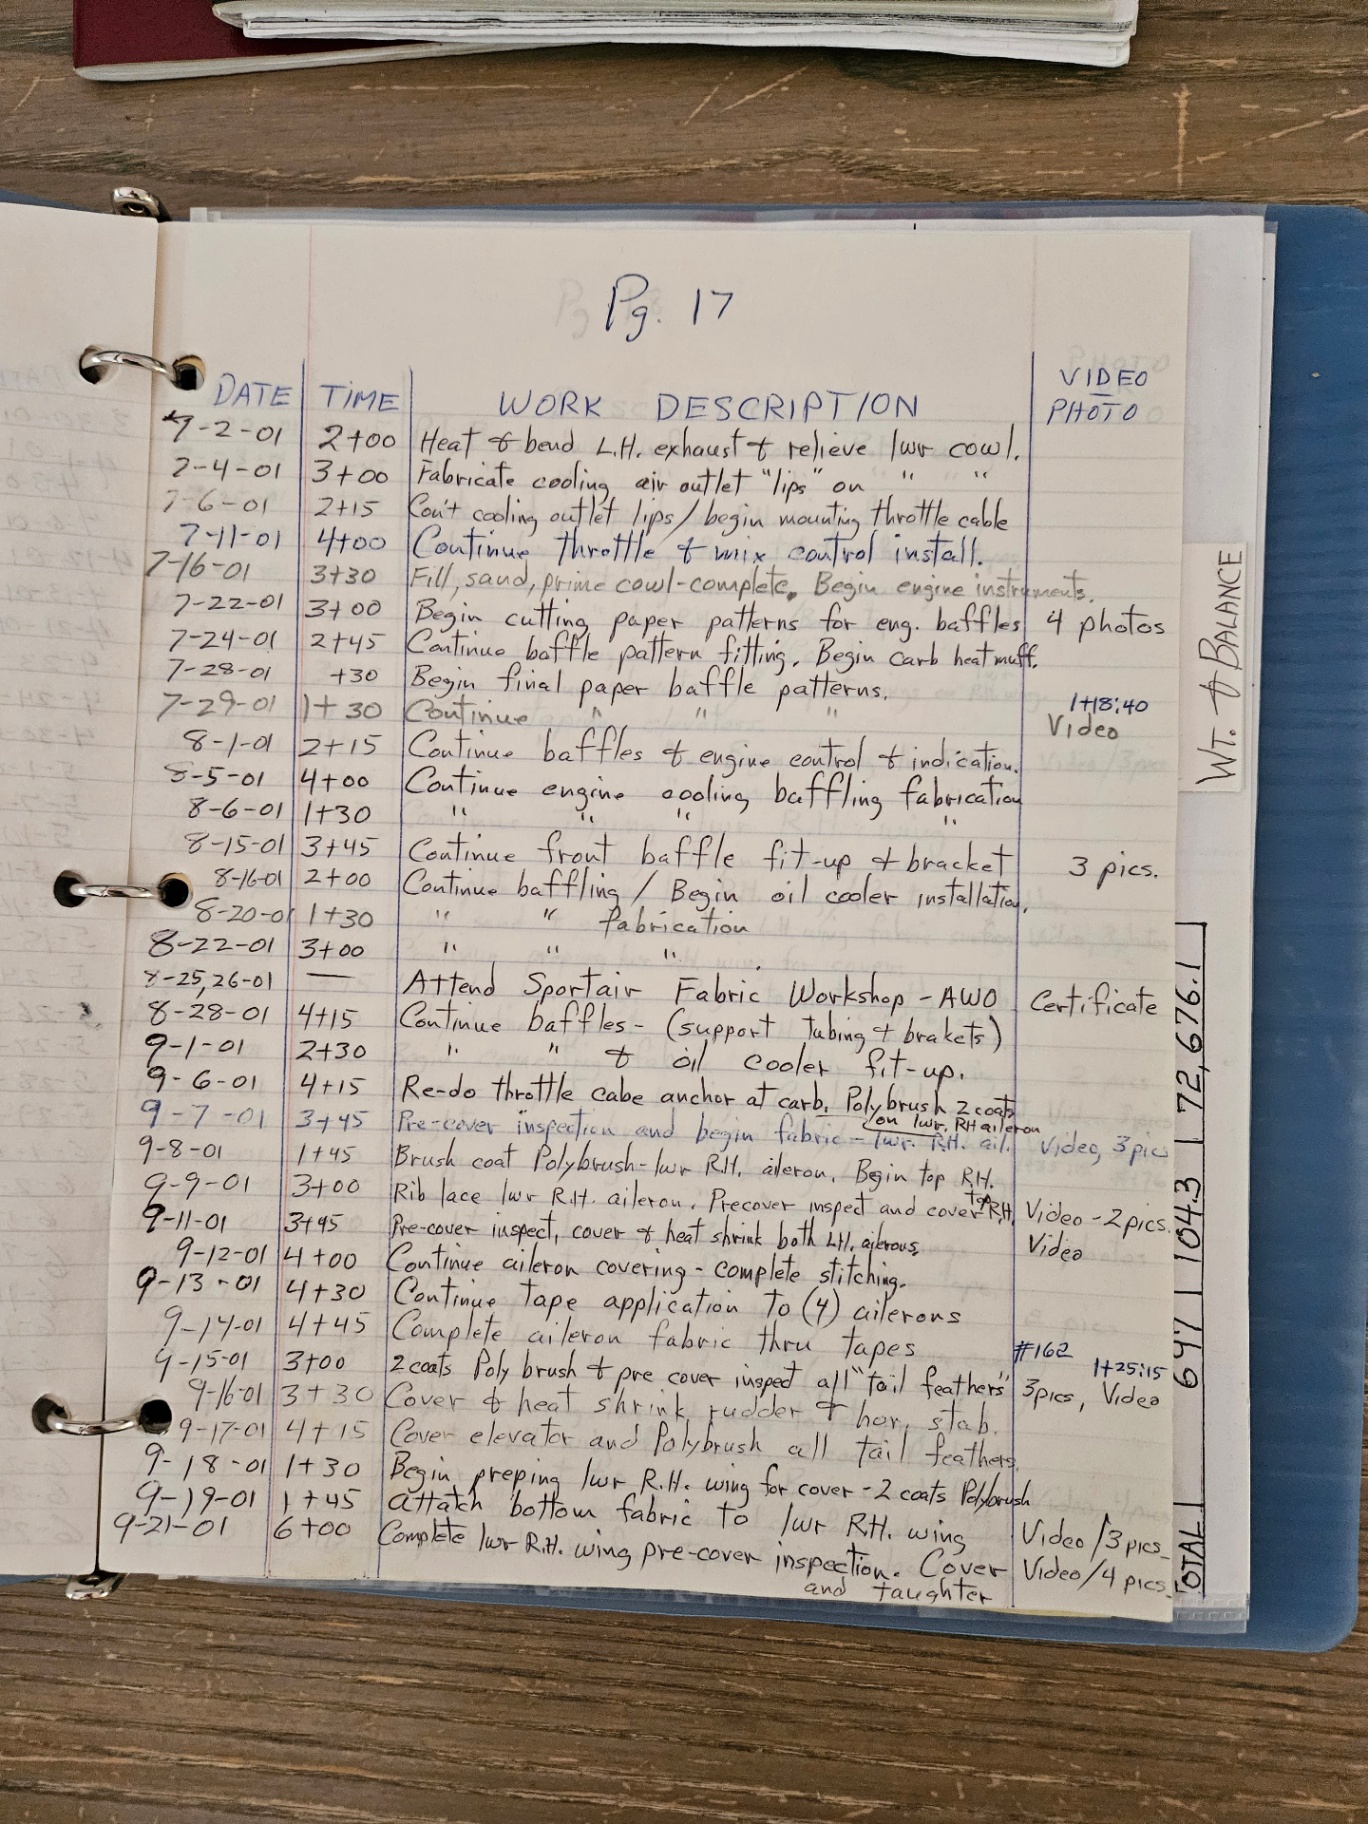 Pg. 17
DATE TIME WORK DESCRIPTION VIDEO PHOTO
7-2-01 2+00 Heat & bend L.H. exhaust & relieve lwr cowl.
7-4-01 3+00 Fabricate cooling air outlet "lips" on " "
7-6-01 2+15 Con't cooling outlet lips/begin mounting throttle cable
7-11-01 4+00 Continue throttle & mix control install.
7-16-01 3+30 Fill, sand, prime cowl-complete. Begin engine instruments.
7-22-01 3+00 Begin cutting paper patterns for eng. baffles 4 photos
7-24-01 2+45 Continue baffle pattern fitting. Begin carb heat muff.
7-28-01 +30 Begin final paper baffle patterns.
7-29-01 1+30 Continue " " " 1+18:40 Video
8-1-01 2+15 Continue baffles & engine control & indication.
8-5-01 4+00 Continue engine cooling baffling fabrication
8-6-01 1+30 " " " "
8-15-01 3+45 Continue front baffle fit-up & bracket 3 pics.
8-16-01 2+00 Continue baffling / Begin oil cooler installation.
8-20-01 1+30 " " fabrication
8-22-01 3+00 " " "
8-25,26-01 — Attend Sportair Fabric Workshop - AWO Certificate
8-28-01 4+15 Continue baffles - (support tubing & brakets)
9-1-01 2+30 " " & oil cooler fit-up.
9-6-01 4+15 Re-do throttle cabe anchor at carb. Polybrush 2 coats
on lwr. RH aileron
9-7-01 3+45 Pre-cover inspection and begin fabric - lwr. R.H. ail. Video, 3 pic
9-8-01 1+45 Brush coat Polybrush-lwr R.H. aileron. Begin top R.H.
9-9-01 3+00 Rib lace lwr R.H. aileron. Precover inspect and cover top R.H. Video - 2 pics.
9-11-01 3+45 Pre-cover inspect, cover & heat shrink both L.H. ailerons. Video
9-12-01 4+00 Continue aileron covering - complete stitching.
9-13-01 4+30 Continue tape application to (4) ailerons
9-14-01 4+45 Complete aileron fabric thru tapes
9-15-01 3+00 2 coats Poly brush & pre cover inspect all "tail feathers" #162 1+25:15 3pics, Video
9-16-01 3+30 Cover & heat shrink rudder & hor. stab.
9-17-01 4+15 Cover elevator and Polybrush all tail feathers.
9-18-01 1+30 Begin preping lwr R.H. wing for cover - 2 coats Polybrush
9-19-01 1+45 attatch bottom fabric to lwr R.H. wing Video/3 pics
9-21-01 6+00 Complete lwr R.H. wing pre-cover inspection. Cover Video/4 pics.
and taughter
WT. & BALANCE
TOTAL | 697 | 104.3 | 72,676.1